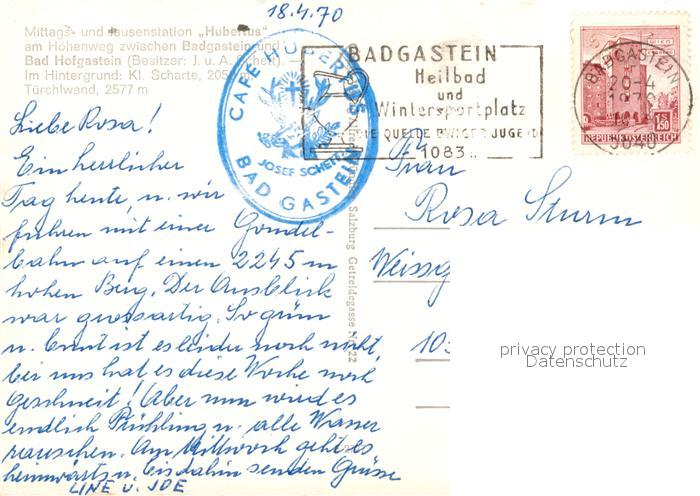 18.4.70
Mittags- und Jausenstation „Hubertus“
am Höhenweg zwischen Badgastein und
Bad Hofgastein (Besitzer: J. u. A. Scheff).
Im Hintergrund: Kl. Scharte, 205
Türchlwand, 2577 m
CAFE HUBERTUS
JOSEF SCHEFF
BAD GASTEIN
BADGASTEIN
Heilbad
und
Wintersportplatz
DIE QUELLE EWIGER JUGEND
1083 m
BADGASTEIN
20-4
1970
5640
WIEN
1.50
REPUBLIK ÖSTERREICH
Liebe Rosa!
Ein herrlicher
Tag heute, u. wir
fuhren mit einer Gondel-
bahn auf einen 2245 m
hohen Berg. Der Ausblick
war grossartig. So grün
u. bunt ist es leider noch nicht,
bei uns hat es diese Woche noch
geschneit! Aber nun wird es
endlich Frühling u. alle Wasser
rauschen. Am Mittwoch geht es
heimwärts u. bis dahin senden Grüsse
LINE u. JOE
Salzburg Getreidegasse Nr. 22
Frau
Rosa Sturm
Weissg
103
privacy protection
Datenschutz